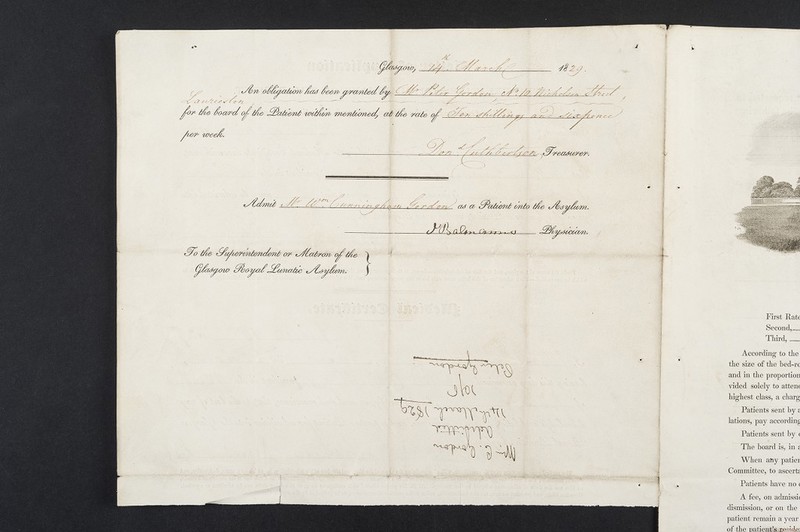 Glasgow, 14th March 1829.
An obligation has been granted by Mr Peter Gordon, No 10 Nicholson Street,
Laurieston
for the board of the Patient within mentioned, at the rate of Ten shillings and sixpence
per week.
Don.d Cuthbertson Treasurer.
Admit Mr Wm. Cunningham Gordon as a Patient into the Asylum.
J Balmanno Physician.
To the Superintendent or Matron of the
Glasgow Royal Lunatic Asylum.
Wm. C. Gordon
Admitted
14th March 1829
10/6
Peter Gordon
First Rate
Second,
Third,
According to the
the size of the bed-ro
and in the proportion
vided solely to atten
highest class, a charg
Patients sent by
lations, pay according
Patients sent by
The board is, in
When any patien
Committee, to ascerta
Patients have no
A fee, on admissi
dismission, or on the
patient remain a year
of the patient's reside